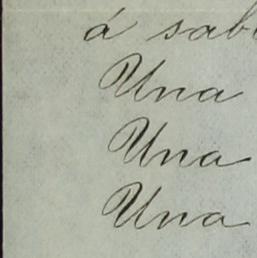 á sab
Una
Una
Una